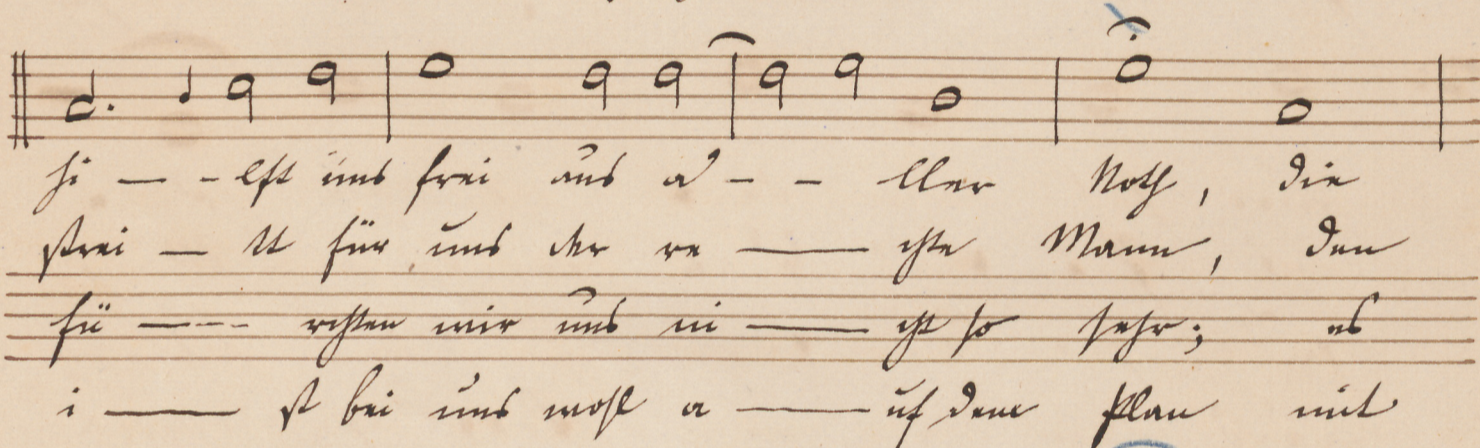 hi — - - lft uns frei aus a - - ller Noth, die
strei — tt für uns der re — chte Mann, den
fü — - - - rchten wir uns ni — cht so sehr; es
i — st bei uns wohl a — uf dem Plan mit